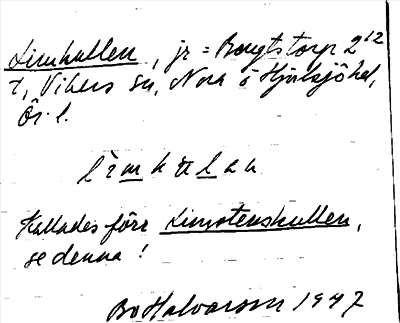 Limkullen, jr = Bengtstorp 2¹²
t, Vikers sn, Nora o Hjulsjö hd,
Ör. l.
lìmkulan
Kallades förr Limstenskullen,
se denna!
Bo Halvarsson 1947